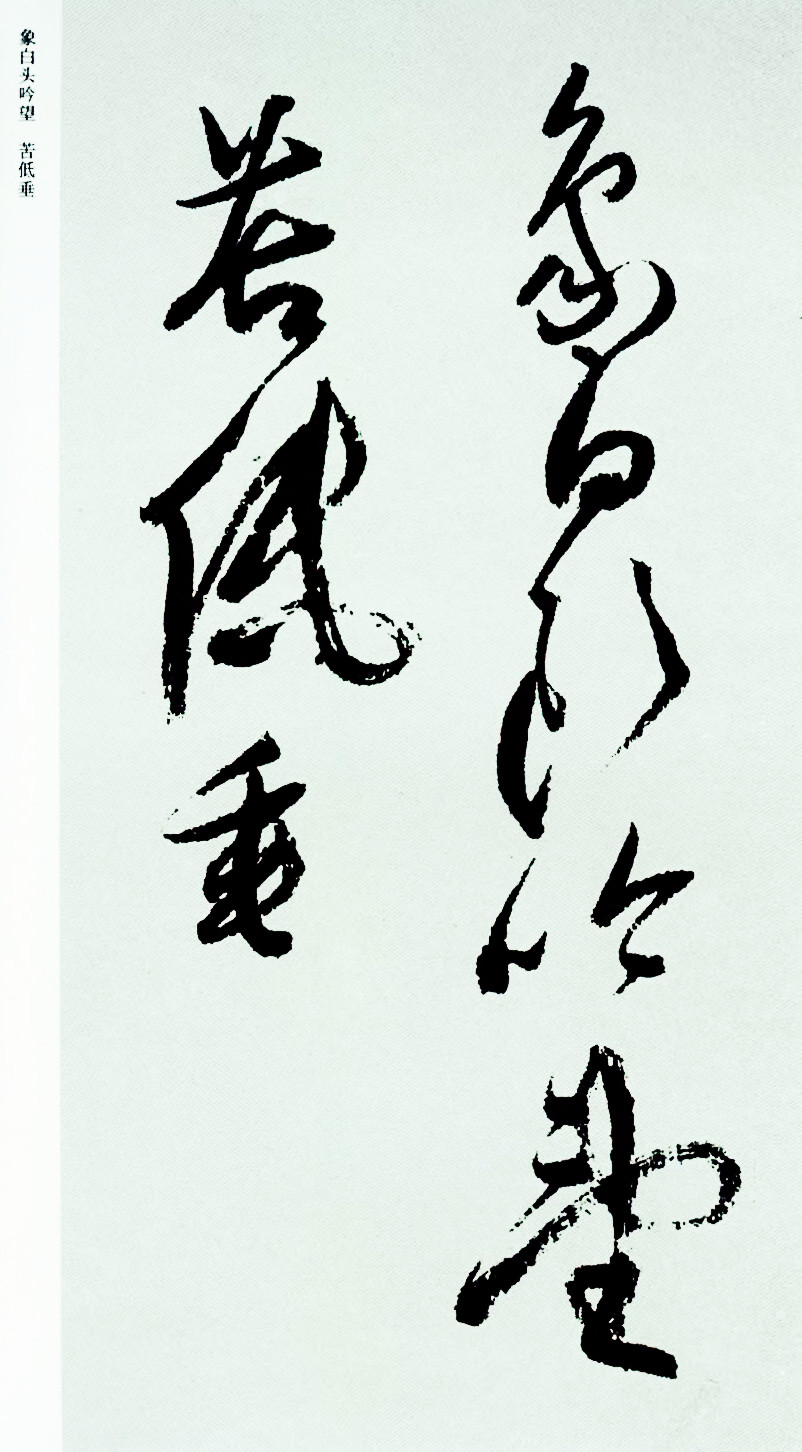 象白头吟望
苦低垂
象白头吟望　苦低垂